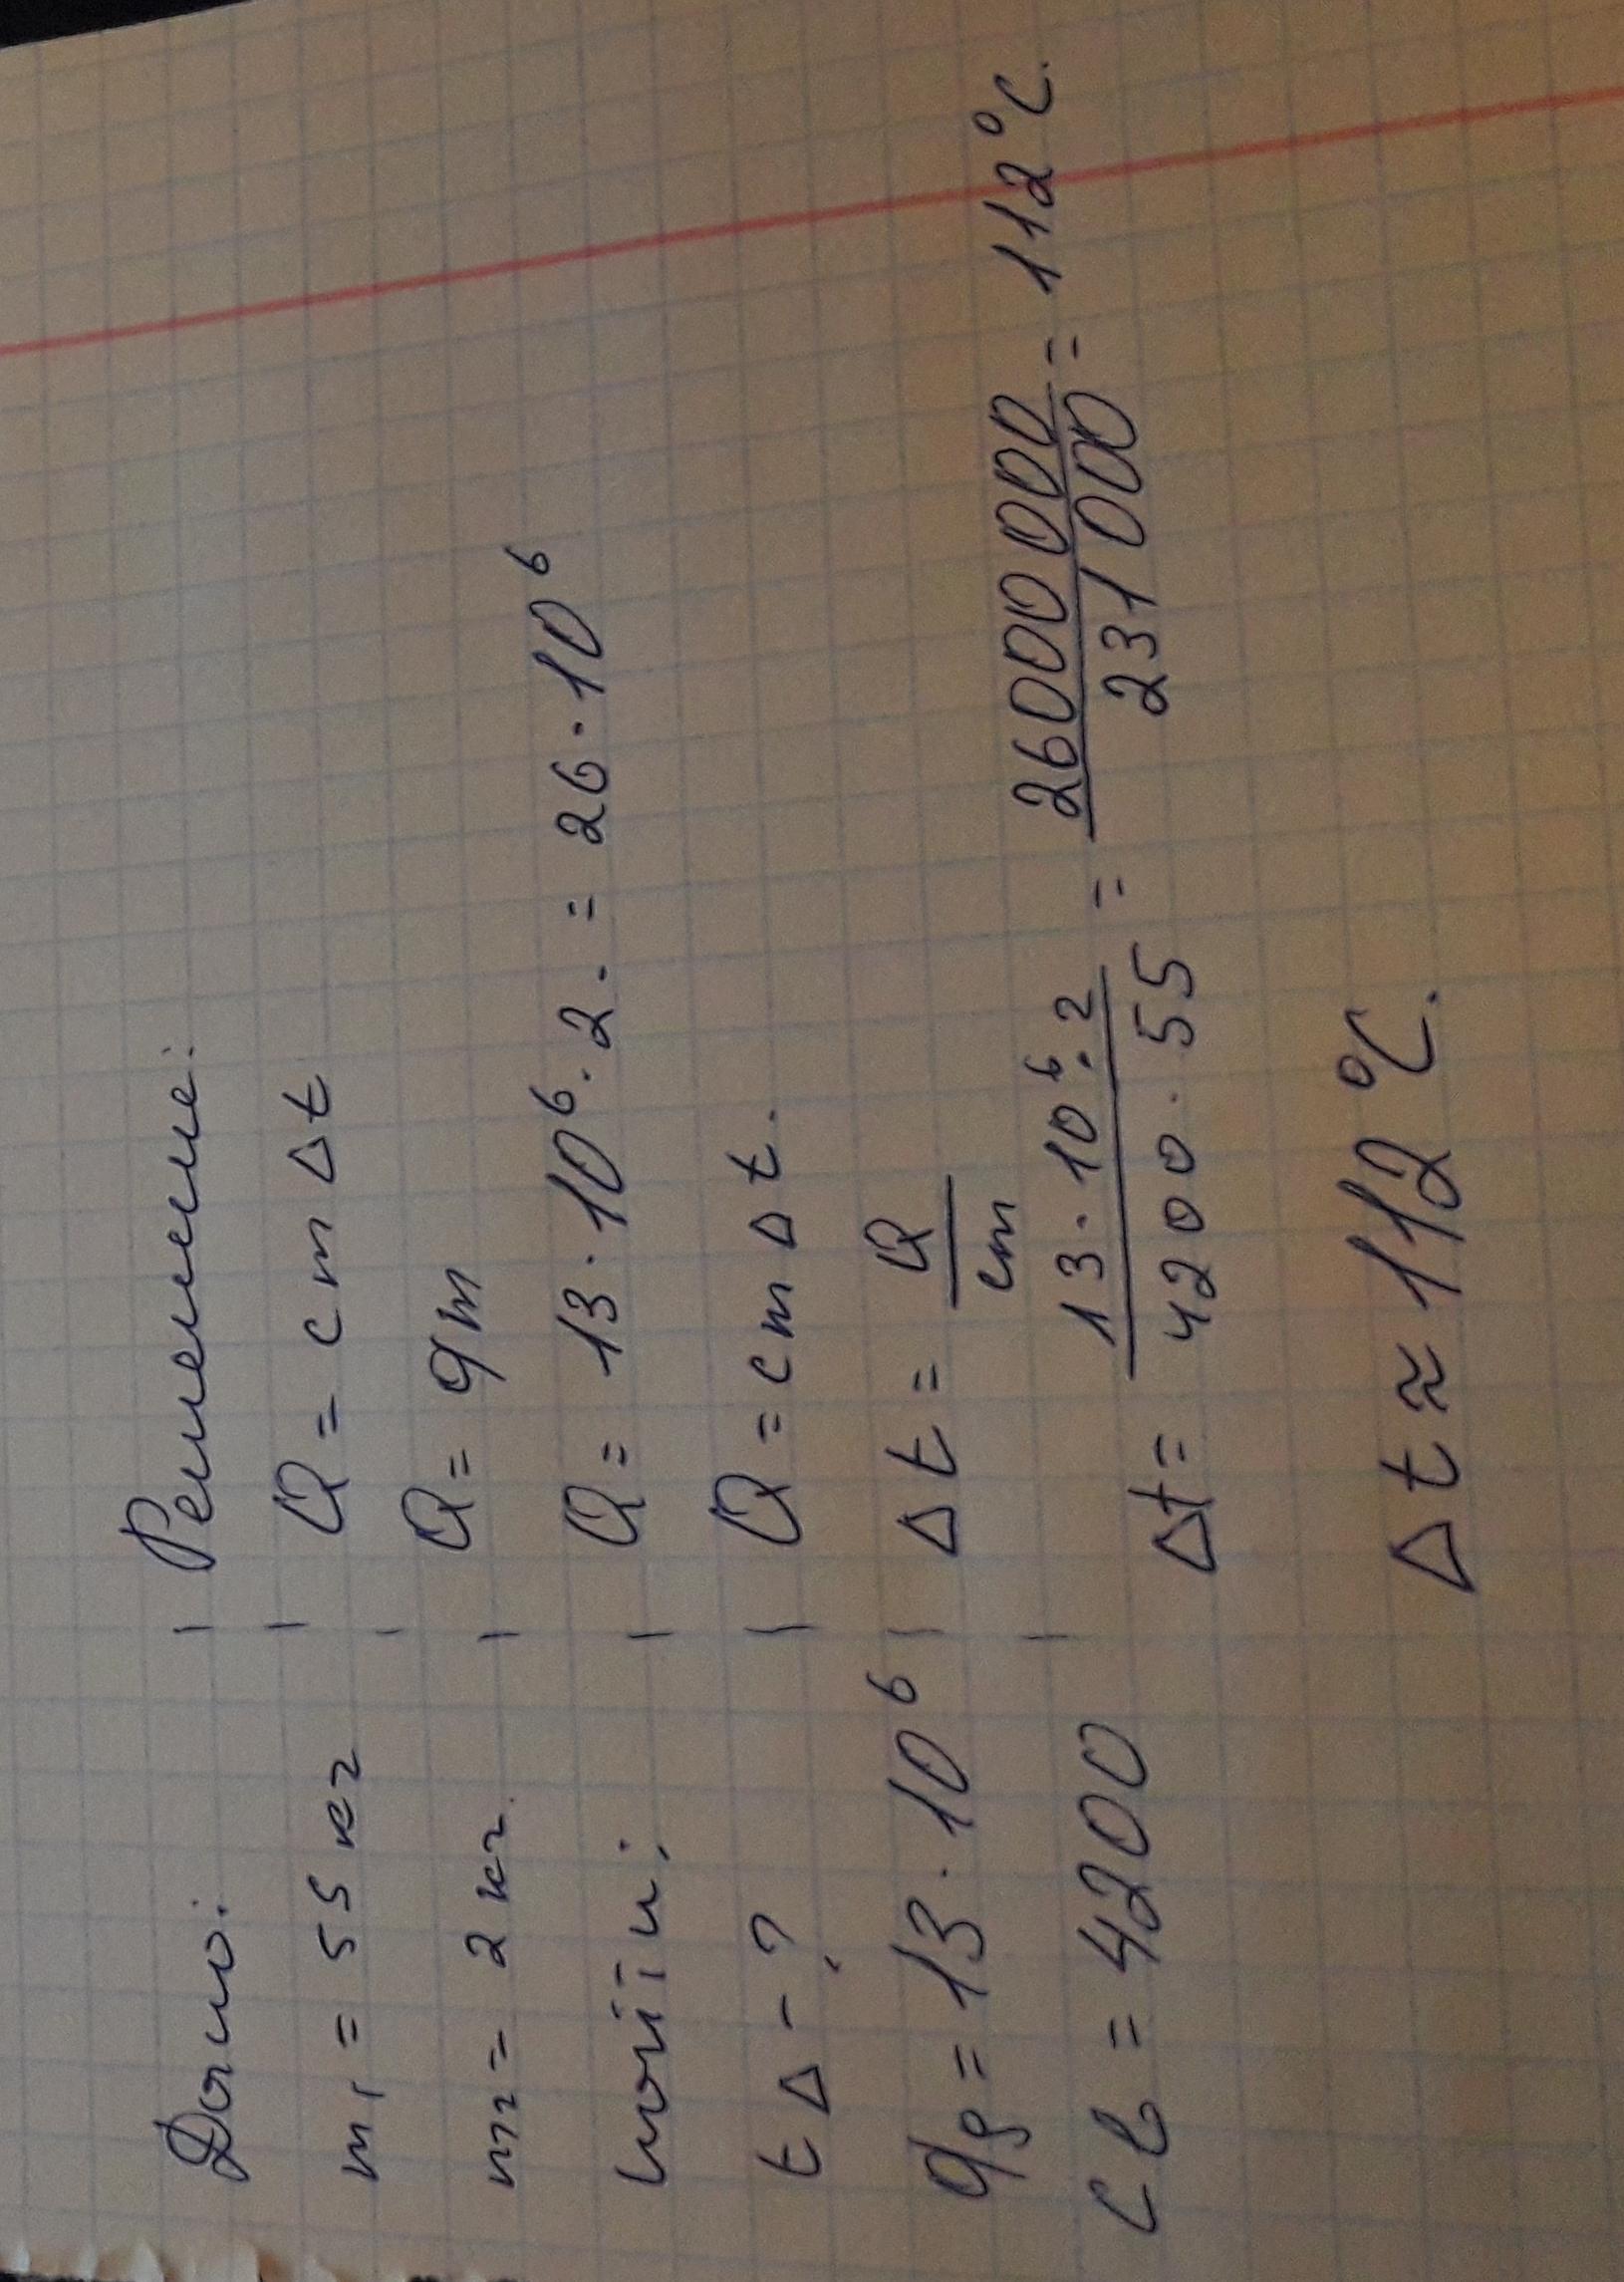 Дано:
m₁ = 55 кг
m₂ = 2 кг.
найти:
t Δ - ?
qg = 13 · 10⁶
Cв = 4200
Решение:
Q = c m Δ t
Q = q m
Q = 13 · 10⁶ · 2 · = 26 · 10⁶
Q = c m Δ t.
Δ t = Q / cm
Δt = 13 · 10⁶ · 2 / 4200 · 55 = 26000000 / 231000 = 112 °C.
Δ t ≈ 112 °C.